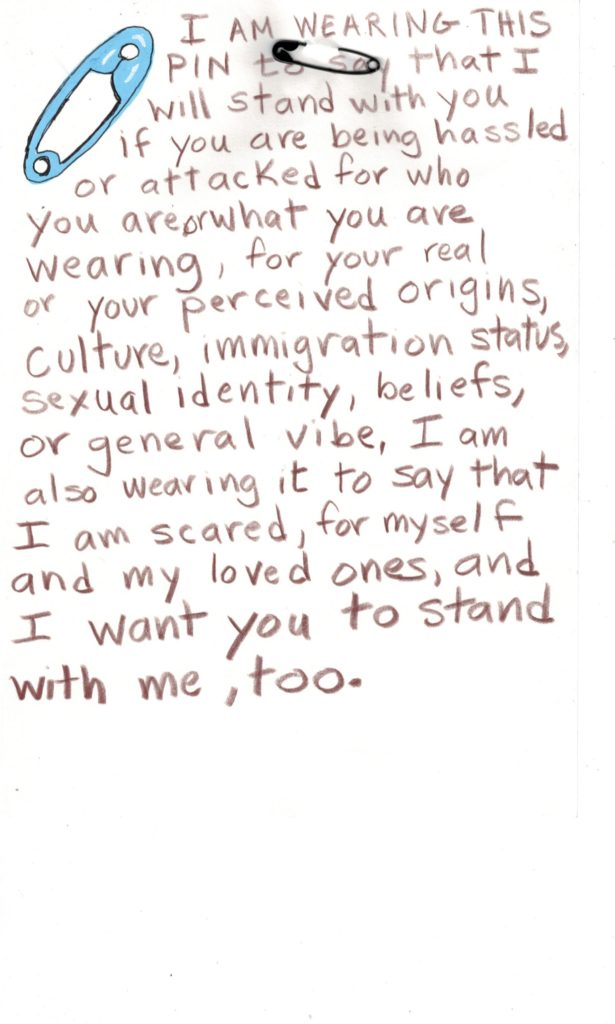 I AM WEARING THIS
PIN to say that I
will stand with you
if you are being hassled
or attacked for who
you are or what you are
wearing, for your real
or your perceived origins,
culture, immigration status,
sexual identity, beliefs,
or general vibe, I am
also wearing it to say that
I am scared, for myself
and my loved ones, and
I want you to stand
with me, too.